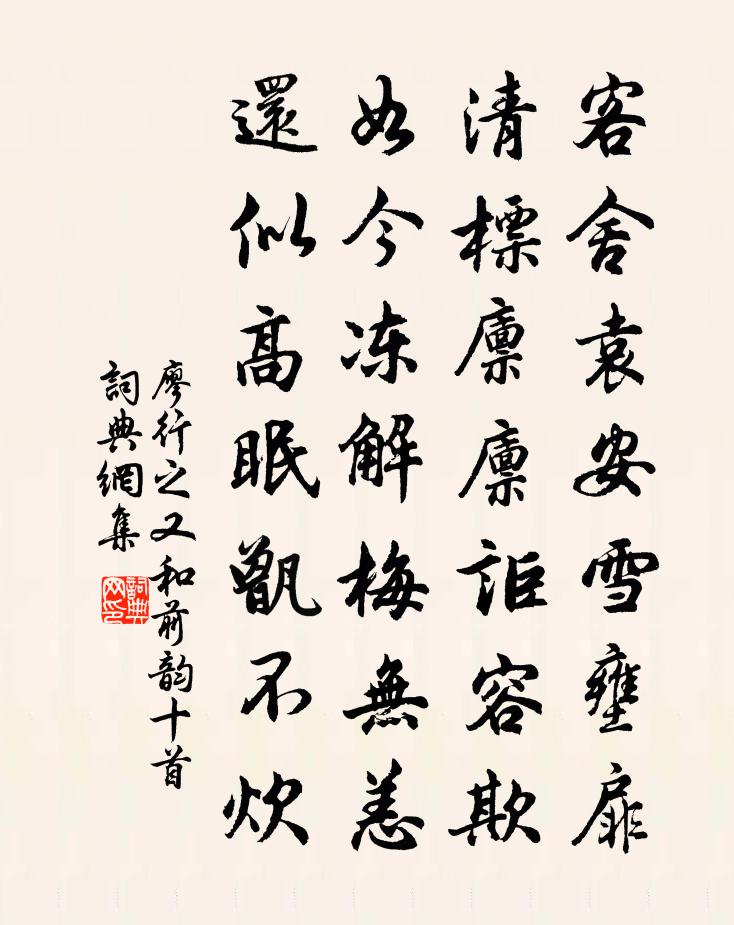 客舍袁安雪壅扉
清標廪廪詎容欺
如今冻解梅無恙
還似高眠甑不炊
廖行之又和前韵十首
詞典網集
詞典网印